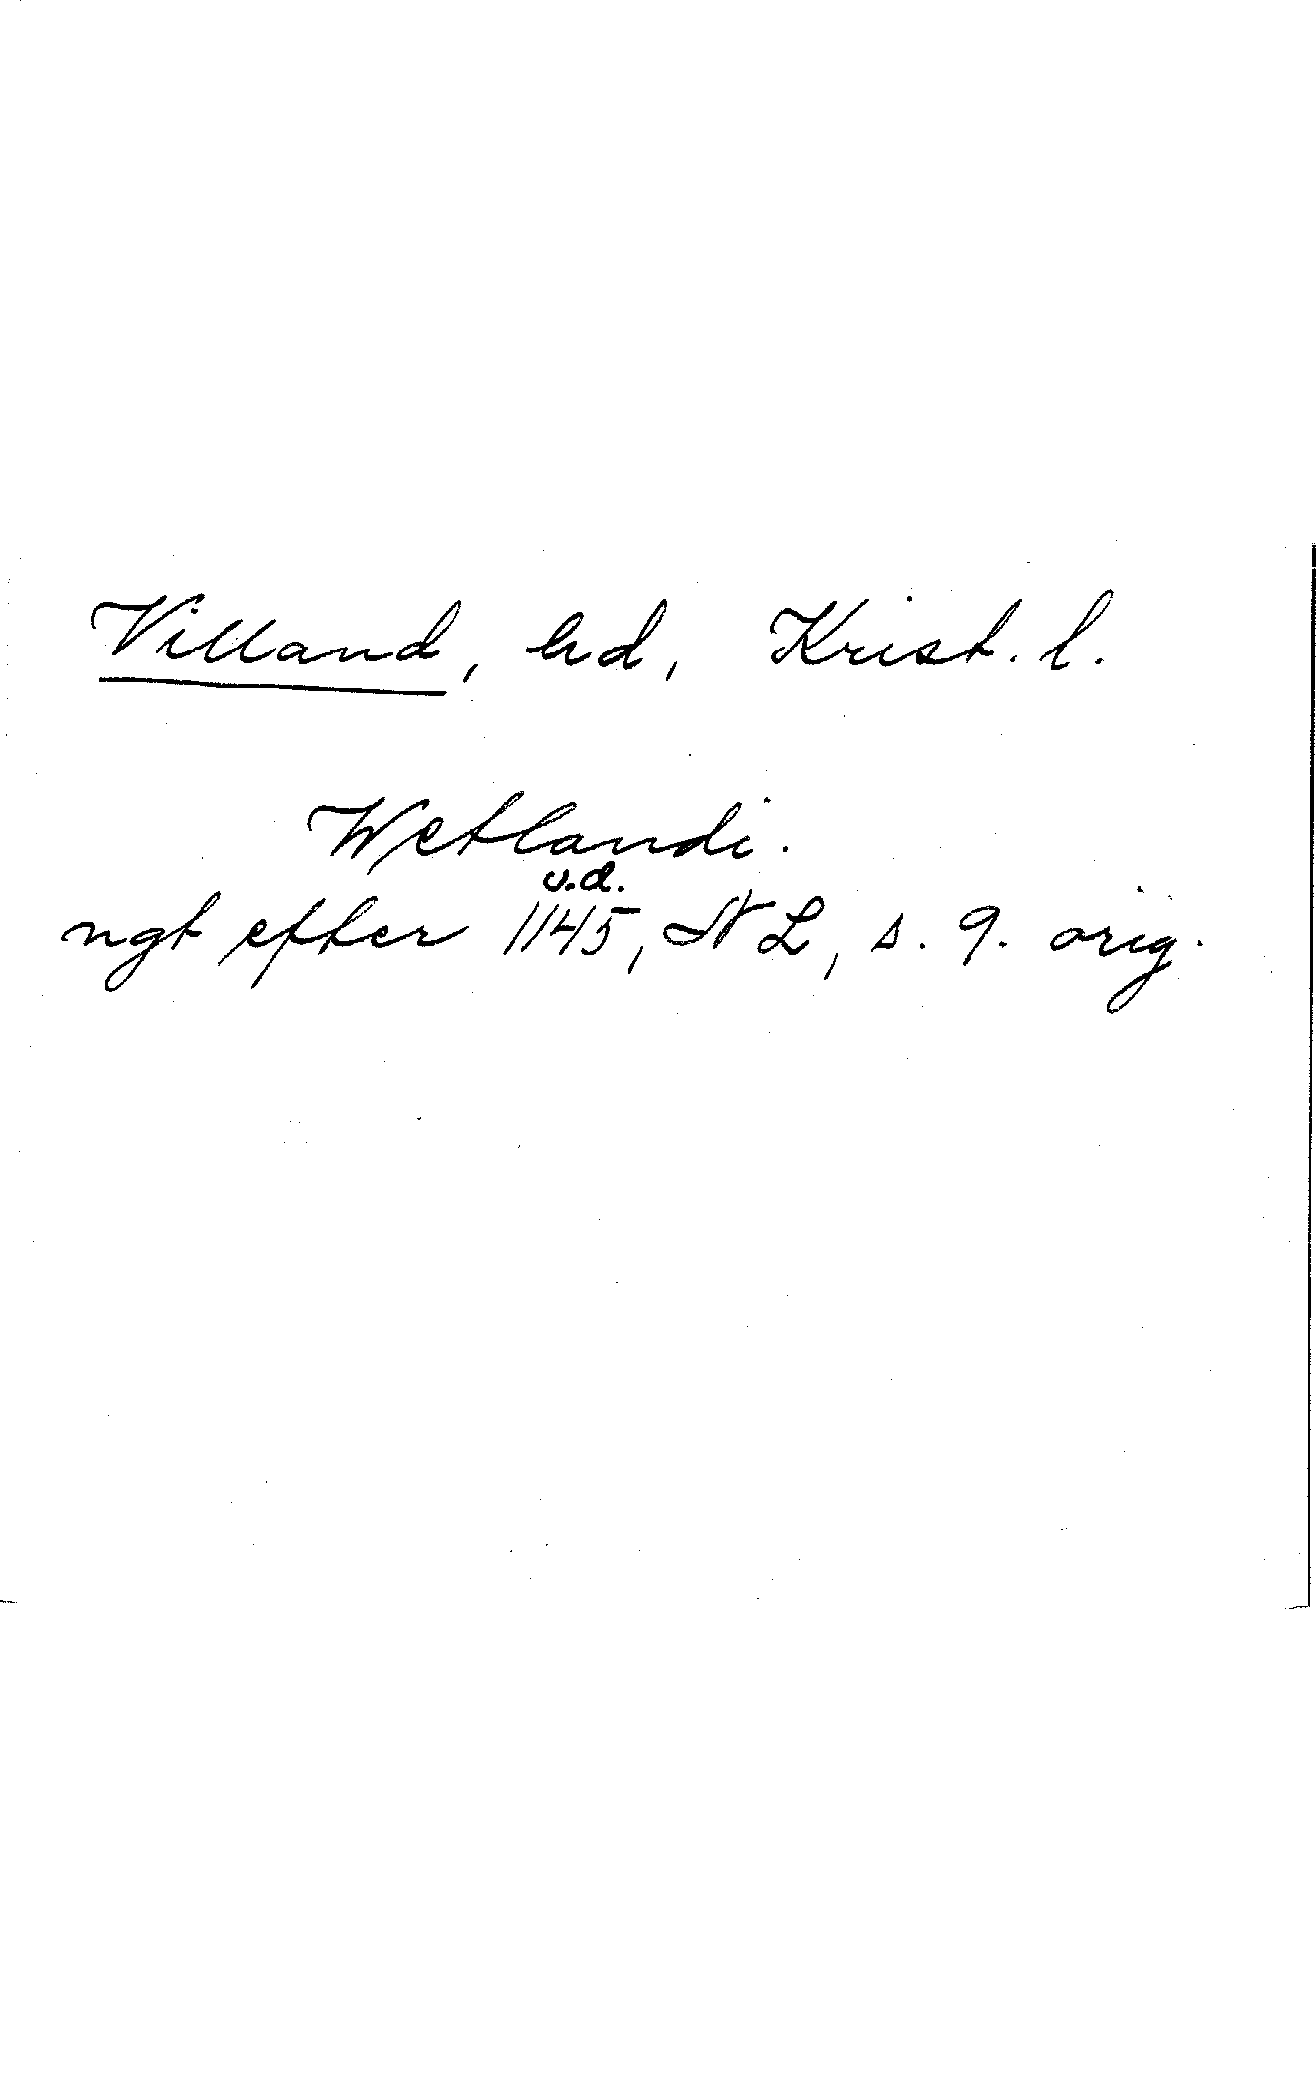 Villand, hd, Krist. l.
Wetlandi.
u.d.
ngt efter 1145, NL, s. 9. orig.